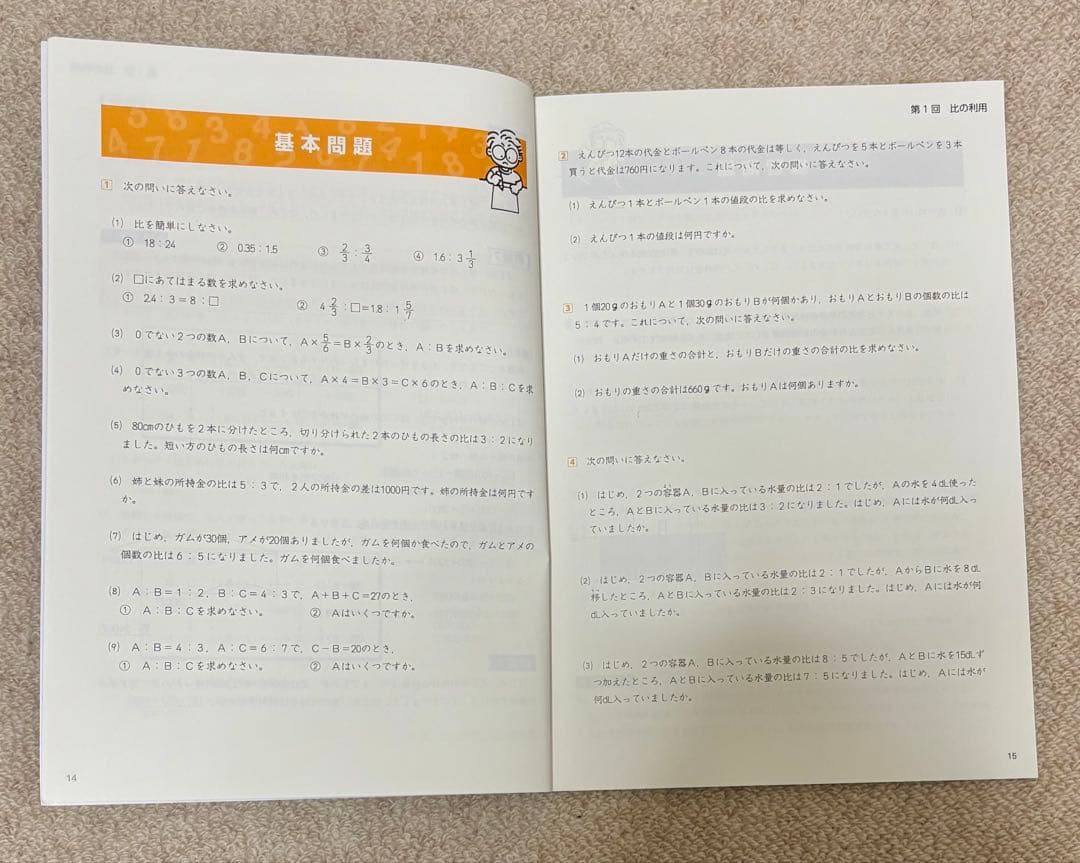 基本問題
1 次の問いに答えなさい。
(1) 比を簡単にしなさい。
① 18：24 ② 0.35：1.5 ③ 2/3：3/4 ④ 1.6：3 1/3
(2) □にあてはまる数を求めなさい。
① 2.4：3＝8：□ ② 4 2/3：□＝1.8：1 5/7
(3) 0でない2つの数A，Bについて，A×5/6＝B×2/3のとき，A：Bを求めなさい。
(4) 0でない3つの数A，B，Cについて，A×4＝B×3＝C×6のとき，A：B：Cを求
めなさい。
(5) 80cmのひもを2本に分けたところ，切り分けられた2本のひもの長さの比は3：2になり
ました。短い方のひもの長さは何cmですか。
(6) 姉と妹の所持金の比は5：3で，2人の所持金の差は1000円です。姉の所持金は何円です
か。
(7) はじめ，ガムが30個，アメが20個ありましたが，ガムを何個か食べたので，ガムとアメの
個数の比は6：5になりました。ガムを何個食べましたか。
(8) A：B＝1：2，B：C＝4：3で，A＋B＋C＝27のとき，
① A：B：Cを求めなさい。 ② Aはいくつですか。
(9) A：B＝4：3，A：C＝6：7で，C－B＝20のとき，
① A：B：Cを求めなさい。 ② Aはいくつですか。
14
第1回 比の利用
2 えんぴつ12本の代金とボールペン8本の代金は等しく，えんぴつを5本とボールペンを3本
買うと代金は760円になります。これについて，次の問いに答えなさい。
(1) えんぴつ1本とボールペン1本の値段の比を求めなさい。
(2) えんぴつ1本の値段は何円ですか。
3 1個20gのおもりAと1個30gのおもりBが何個かあり，おもりAとおもりBの個数の比は
5：4です。これについて，次の問いに答えなさい。
(1) おもりAだけの重さの合計と，おもりBだけの重さの合計の比を求めなさい。
(2) おもりの重さの合計は660gです。おもりAは何個ありますか。
4 次の問いに答えなさい。
(1) はじめ，2つの容器A，Bに入っている水量の比は2：1でしたが，Aの水を4dL使った
ところ，AとBに入っている水量の比は3：2になりました。はじめ，Aには水が何dL入っ
ていましたか。
(2) はじめ，2つの容器A，Bに入っている水量の比は2：1でしたが，AからBに水を8dL
移したところ，AとBに入っている水量の比は2：3になりました。はじめ，Aには水が何
dL入っていましたか。
(3) はじめ，2つの容器A，Bに入っている水量の比は8：5でしたが，AとBに水を15dLず
つ加えたところ，AとBに入っている水量の比は7：5になりました。はじめ，Aには水が
何dL入っていましたか。
15